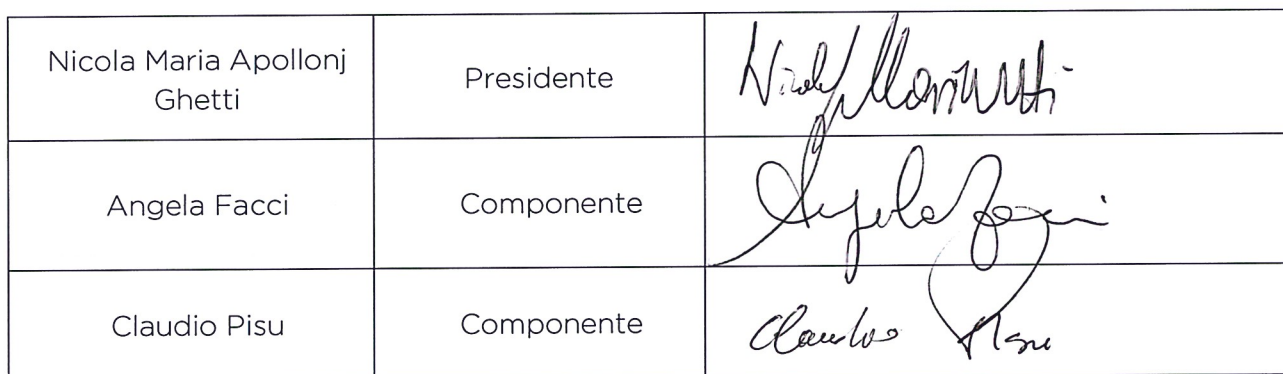 Nicola Maria Apollonj
Ghetti
Presidente
Angela Facci
Componente
Angela Facci
Claudio Pisu
Componente
Claudio Pisu